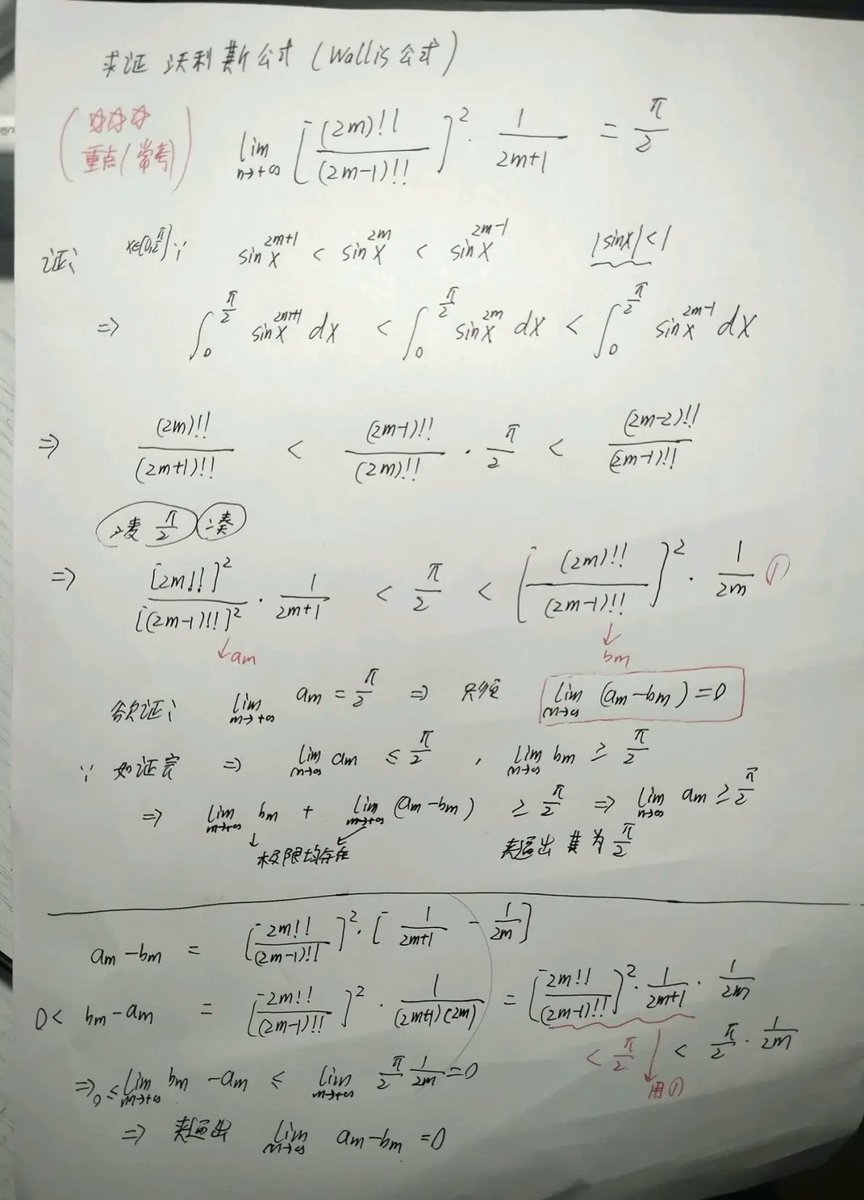 求证 沃利斯公式 (Wallis 公式)
(☆☆☆
重点/常考)
lim n→+∞ [(2m)!!/(2m-1)!!]² · 1/(2m+1) = π/2
证: x∈[0,π/2] ∵ sin^{2m+1}x < sin^{2m}x < sin^{2m-1}x |sinx|<1
⇒ ∫₀^{π/2} sin^{2m+1}x dx < ∫₀^{π/2} sin^{2m}x dx < ∫₀^{π/2} sin^{2m-1}x dx
⇒ (2m)!!/(2m+1)!! < (2m-1)!!/(2m)!! · π/2 < (2m-2)!!/(2m-1)!!
凑 π/2 凑
⇒ [2m!!]²/[(2m-1)!!]² · 1/(2m+1) < π/2 < [(2m)!!/(2m-1)!!]² · 1/2m ①
↓am ↓bm
欲证: lim m→+∞ am = π/2 ⇒ 只须 lim m→∞ (am-bm)=0
∵ 如证完 ⇒ lim m→∞ am ≤ π/2 , lim m→∞ bm ≥ π/2
⇒ lim m→+∞ bm + lim m→+∞ (am-bm) ≥ π/2 ⇒ lim m→∞ am ≥ π/2
极限均存在 夹逼出 其为 π/2
am-bm = [2m!!/(2m-1)!!]² · [1/(2m+1) - 1/2m]
0< bm-am = [2m!!/(2m-1)!!]² · 1/(2m+1)(2m) = [2m!!/(2m-1)!!]² · 1/(2m+1) · 1/2m
< π/2 用① < π/2 · 1/2m
⇒ 0 ≤ lim m→+∞ bm-am ≤ lim m→+∞ π/2 1/2m =0
⇒ 夹逼出 lim m→∞ am-bm =0